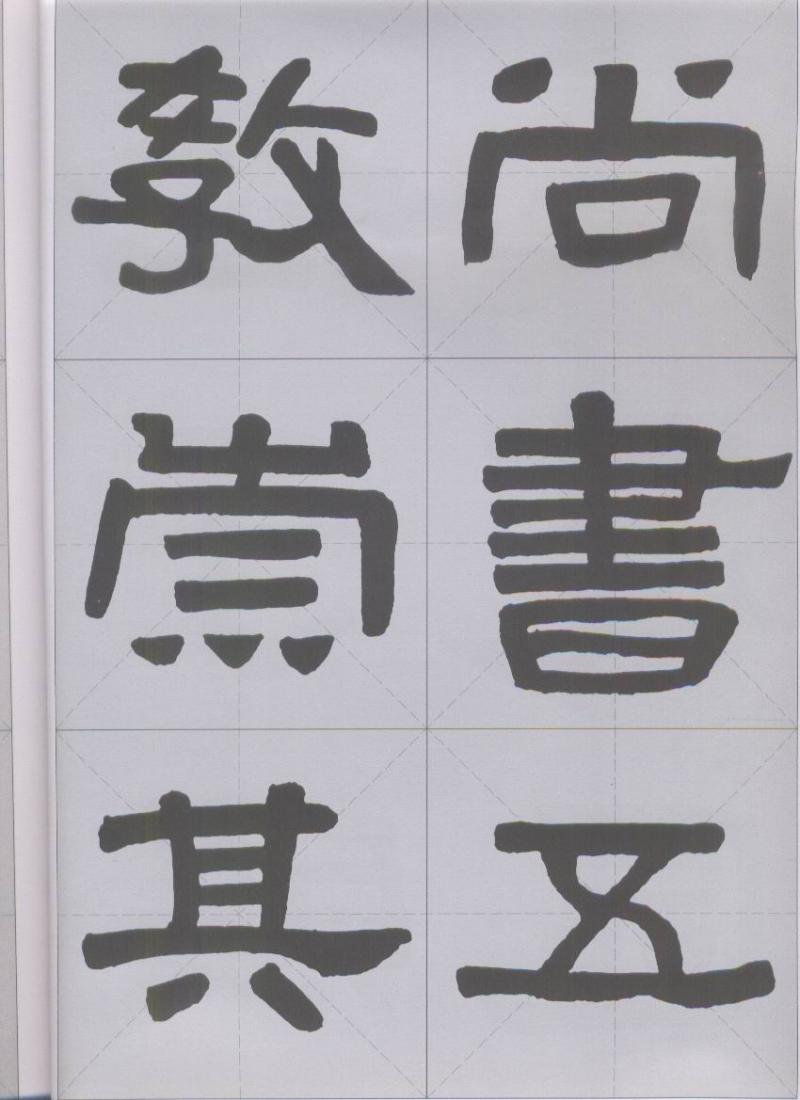 尚書五
教崇其